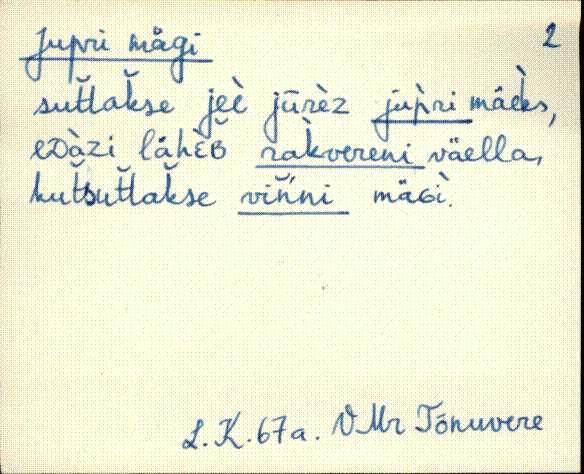 Jupri mägi
2
sut̆lak̆se jeè jūrèz jùpri mäèks,
eDàzi lähèB ràkvereni väella,
kut̆sut̆lak̆se vin̆'ni mäGì.
L.K. 67a. VMr Tõnuvere